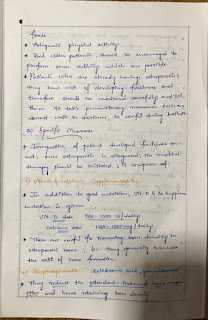 foods.
• Adequate physical activity
• Bed ridden patients should be encouraged to
perform some activity which are possible.
• Patients who are already having osteoporosis
they have risk of developing fractures and
therefore should be mobilized carefully and tell
them to take precautionary measures such as
do not walk in darkness, be careful during bathing
b) Specific Measures:
• Irrespective of patient developed fractures or
not, once osteoporosis is diagnosed, the medical
therapy should be initiated, it comprises of
i) Vit-D & calcium supplementation
• In addition to good nutrition, vit-D & Ca supple-
mentation is given
Vit-D dose 800-1000 IU/daily
Calcium dose 1000-1500 mg/daily)
• These are useful for increasing bone density in
osteoporotic bones, as they generally increase
the rate of bone formation
ii) Bisphosphonates
• They reduce the osteoclast induced bone resor-
ption and hence retaining bone density